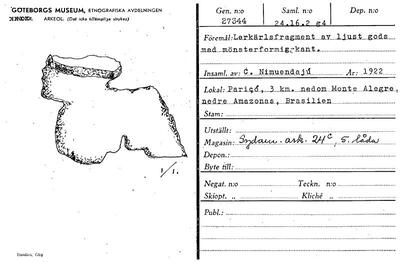 GÖTEBORGS MUSEUM, ETNOGRAFISKA AVDELNINGEN
ARKEOL. (Det icke tillämpliga strykes)
1/1.
Gen. n:o
27344
Saml. n:o
24.16.2 g4
Dep. n:o
Föremål: Lerkärlsfragment av ljust gods
med mönsterformig kant.
Insaml. av: C. Nimuendajú År: 1922
Lokal: Pariçó, 3 km. nedom Monte Alegre,
nedre Amazonas, Brasilien
Stam:
Utställt:
Magasin: Sydam. ark. 24c, 5. låda
Depon.:
Byte till:
Negat. n:o Teckn. n:o
Skiopt. n:o Kliché
Publ.: